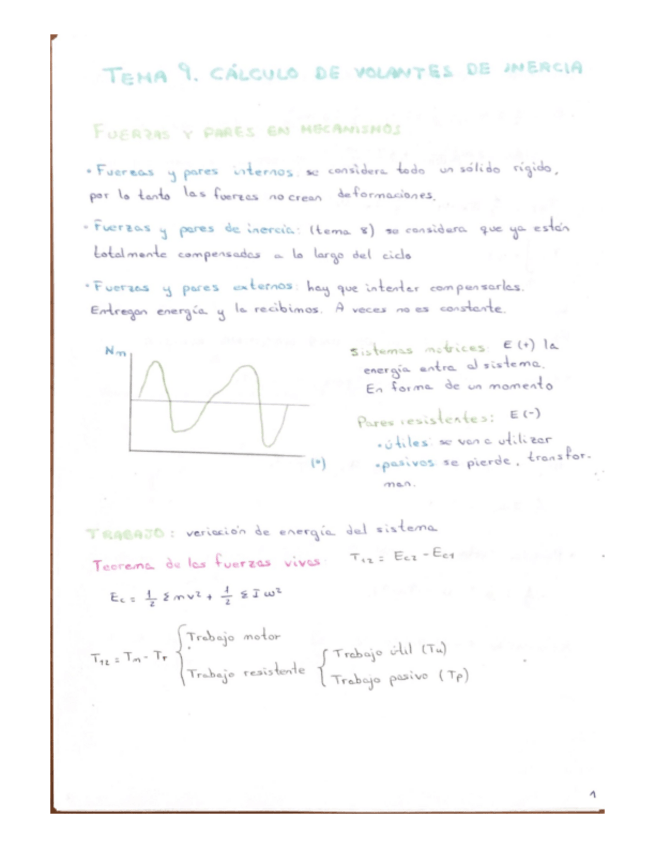 TEMA 9. CÁLCULO DE VOLANTES DE INERCIA
FUERZAS Y PARES EN MECANISMOS
• Fuerzas y pares internos: se considera todo un sólido rígido,
por lo tanto las fuerzas no crean deformaciones.
• Fuerzas y pares de inercia: (tema 8) se considera que ya están
totalmente compensadas a lo largo del ciclo
• Fuerzas y pares externos: hay que intentar compensarlas.
Entregan energía y la recibimos. A veces no es constante.
Nm
(º)
Sistemas motrices: E (+) la
energía entra al sistema.
En forma de un momento
Pares resistentes: E (-)
• útiles: se van a utilizar
• pasivos se pierde, transfor-
man.
TRABAJO: variación de energía del sistema
Teorema de las fuerzas vivas: T12 = Ec2 - Ec1
Ec = 1/2 Σmv² + 1/2 ΣIω²
T12 = Tm - Tr { Trabajo motor
Trabajo resistente { Trabajo útil (Tu)
Trabajo pasivo (Tp)
1